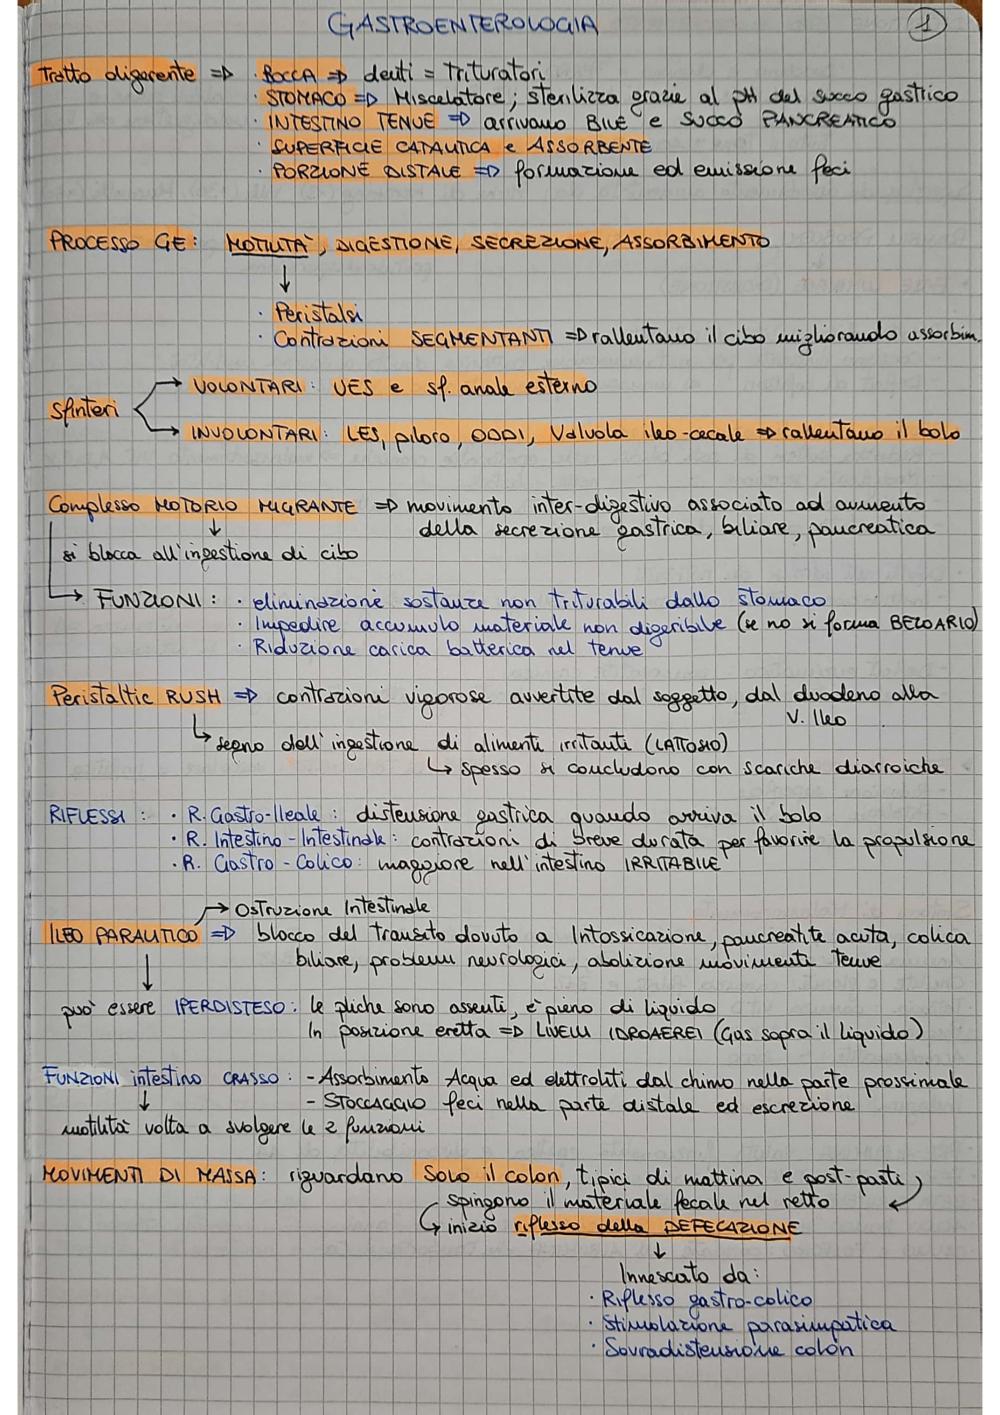 GASTROENTEROLOGIA 1
Tratto digerente => · BOCCA => denti = Trituratori
· STOMACO => Miscelatore; sterilizza grazie al pH del succo gastrico
· INTESTINO TENUE => arrivano BILE e SUCCO PANCREATICO
· SUPERFICIE CATALITICA e ASSORBENTE
· PORZIONE DISTALE => formazione ed emissione feci
PROCESSO GE: MOTILITÀ, DIGESTIONE, SECREZIONE, ASSORBIMENTO
↓
· Peristalsi
· Contrazioni SEGMENTANTI => rallentano il cibo migliorando assorbim.
→ VOLONTARI: UES e sf. anale esterno
Sfinteri
→ INVOLONTARI: LES, piloro, ODDI, Valvola ileo-cecale => rallentano il bolo
Complesso MOTORIO MIGRANTE => movimento inter-digestivo associato ad aumento
↓ della secrezione gastrica, biliare, pancreatica
si blocca all'ingestione di cibo
→ FUNZIONI: · eliminazione sostanze non triturabili dallo stomaco
· Impedire accumulo materiale non digeribile (se no si forma BEZOARIO)
· Riduzione carica batterica nel tenue
Peristaltic RUSH => contrazioni vigorose avvertite dal soggetto, dal duodeno alla
V. Ileo
↳ segno dell'ingestione di alimenti irritanti (LATTOSIO)
↳ spesso si concludono con scariche diarroiche
RIFLESSI: · R. Gastro-Ileale: distensione gastrica quando arriva il bolo
· R. Intestino-Intestinale: contrazioni di breve durata per favorire la propulsione
· R. Gastro-Colico: maggiore nell'intestino IRRITABILE
→ Ostruzione Intestinale
ILEO PARALITICO => blocco del transito dovuto a Intossicazione, pancreatite acuta, colica
biliare, problemi neurologici, abolizione movimenti Tenue
↓
può essere IPERDISTESO: le pliche sono assenti, è pieno di liquido
In posizione eretta => LIVELLI IDROAEREI (Gas sopra il liquido)
FUNZIONI intestino CRASSO: - Assorbimento Acqua ed elettroliti dal chimo nella parte prossimale
↓ - STOCCAGGIO feci nella parte distale ed escrezione
motilità volta a svolgere le 2 funzioni
MOVIMENTI DI MASSA: riguardano Solo il colon, tipici di mattina e post-pasti,
spingono il materiale fecale nel retto
↳ inizio riflesso della DEFECAZIONE
↓
Innescato da:
· Riflesso gastro-colico
· Stimolazione parasimpatica
· Sovradistensione colon